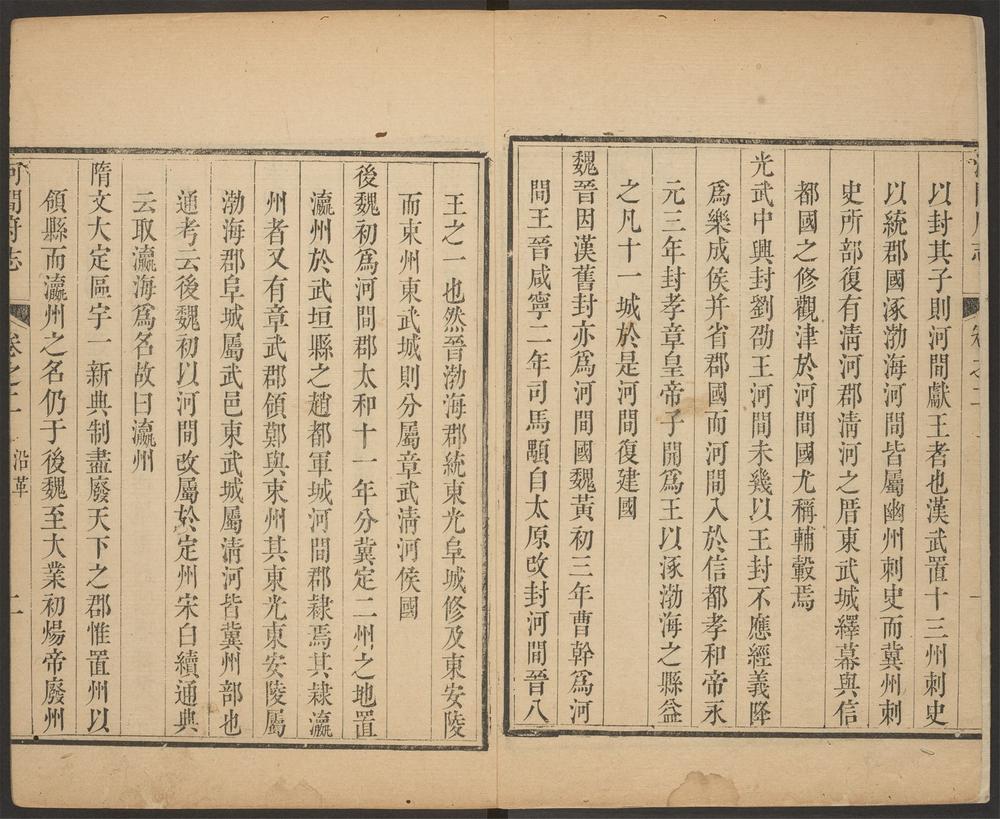 以封其子則河間獻王者也漢武置十三州刺史
以統郡國涿渤海河間皆屬幽州刺史而冀州刺
史所部復有淸河郡淸河之厝東武城繹幕與信
都國之修觀津於河間國尤稱輔轂焉
光武中興封劉劭王河間未幾以王封不應經義降
爲樂成侯并省郡國而河間入於信都孝和帝永
元三年封孝章皇帝子開爲王以涿渤海之縣益
之凡十一城於是河間復建國
魏晉因漢舊封亦爲河間國魏黃初三年曹幹爲河
間王晉咸寧二年司馬顒自太原改封河間晉八
王之一也然晉渤海郡統東光阜城修及東安陵
而東州東武城則分屬章武淸河侯國
後魏初爲河間郡太和十一年分冀定二州之地置
瀛州於武垣縣之趙都軍城河間郡隸焉其隸瀛
州者又有章武郡領鄭與東州其東光東安陵屬
渤海郡阜城屬武邑東武城屬淸河皆冀州部也
通考云後魏初以河間改屬於定州宋白續通典
云取瀛海爲名故曰瀛州
隋文大定區宇一新典制盡廢天下之郡惟置州以
領縣而瀛州之名仍于後魏至大業初煬帝廢州
河間府志
卷之二
沿革
二